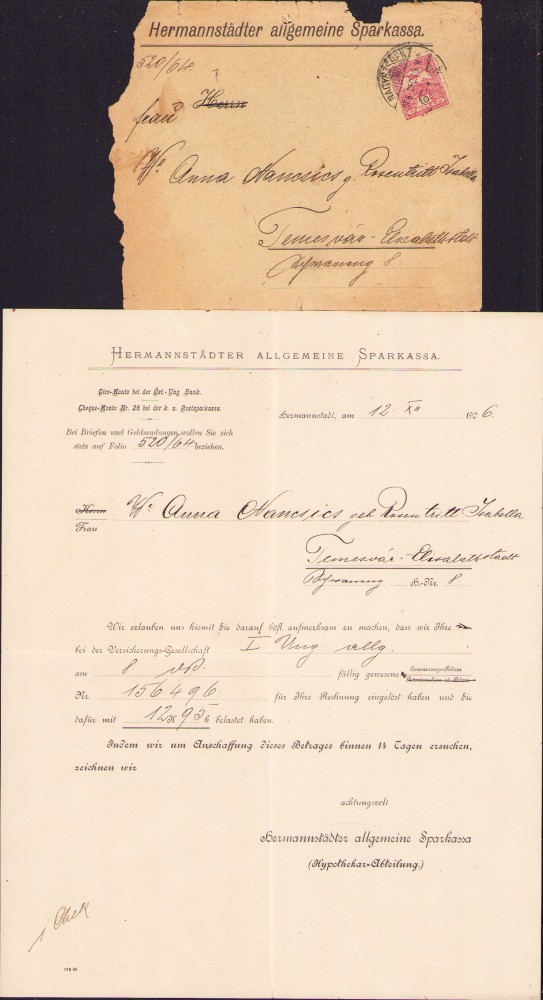 Hermannstädter allgemeine Sparkassa.
520/64
NAGYSZEBEN
Frau Herrn
We Anna Nancsics g. Rosentritt Isabella
Temesvár-Elisabethstadt
8
HERMANNSTÄDTER ALLGEMEINE SPARKASSA.
Giro-Konto bei der Öst.-Ung Bank.
Cheque-Konto Nr. 26 bei der k. u. Postsparkassa.
Hermannstadt, am 12 XII 1906.
Bei Briefen und Geldsendungen wollen Sie sich
stets auf Folio 520/64 beziehen.
Herrn We Anna Nancsics geb Rosentritt Isabella
Frau
Temesvár-Elisabethstadt
H.-Nr. 8
Wir erlauben uns hiemit Sie darauf höfl. aufmerksam zu machen, dass wir Ihre
bei der Versicherungs-Gesellschaft I Ung. allg.
am 8 fällig gewesene
Nr. 156496 für Ihre Rechnung eingelöst haben und Sie
dafür mit 12 K 95 h belastet haben.
Indem wir um Anschaffung dieses Betrages binnen 14 Tagen ersuchen,
zeichnen wir
achtungsvoll
Hermannstädter allgemeine Sparkassa
(Hypothekar-Abteilung.)
1 Chek